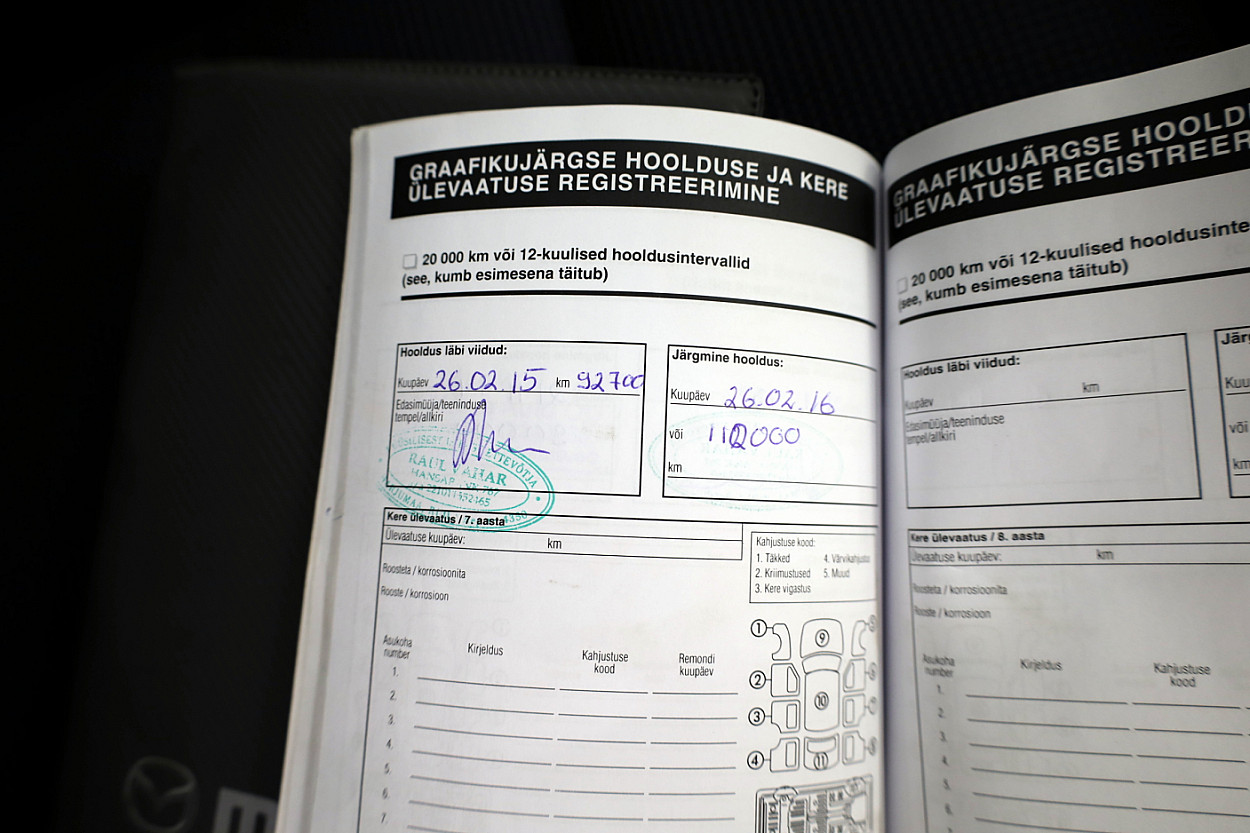 GRAAFIKUJÄRGSE HOOLDUSE JA KERE
ÜLEVAATUSE REGISTREERIMINE
20 000 km või 12-kuulised hooldusintervallid
(see, kumb esimesena täitub)
Hooldus läbi viidud:
Kuupäev 26.02.15 km 92700
Edasimüüja/teeninduse
tempel/allkiri
RAUL VAHAR
Järgmine hooldus:
Kuupäev 26.02.16
või 112000
km
Kere ülevaatus / 7. aasta
Ülevaatuse kuupäev: km
Roosteta / korrosioonita
Rooste / korrosioon
Kahjustuse kood:
1. Täkked 4. Värvikahjustus
2. Kriimustused 5. Muud
3. Kere vigastus
Asukoha
number
Kirjeldus
Kahjustuse
kood
Remondi
kuupäev
1.
2.
3.
4.
5.
6.
7.
1
2
3
4
9
10
11
GRAAFIKUJÄRGSE HOOLD
ÜLEVAATUSE REGISTREER
20 000 km või 12-kuulised hooldusinte
(see, kumb esimesena täitub)
Hooldus läbi viidud:
Kuupäev km
Edasimüüja/teeninduse
tempel/allkiri
Jär
Kuu
või
km
Kere ülevaatus / 8. aasta
Ülevaatuse kuupäev: km
Roosteta / korrosioonita
Rooste / korrosioon
Asukoha
number
Kirjeldus
Kahjustuse
kood
1.
2.
3.
4.
5.
6.